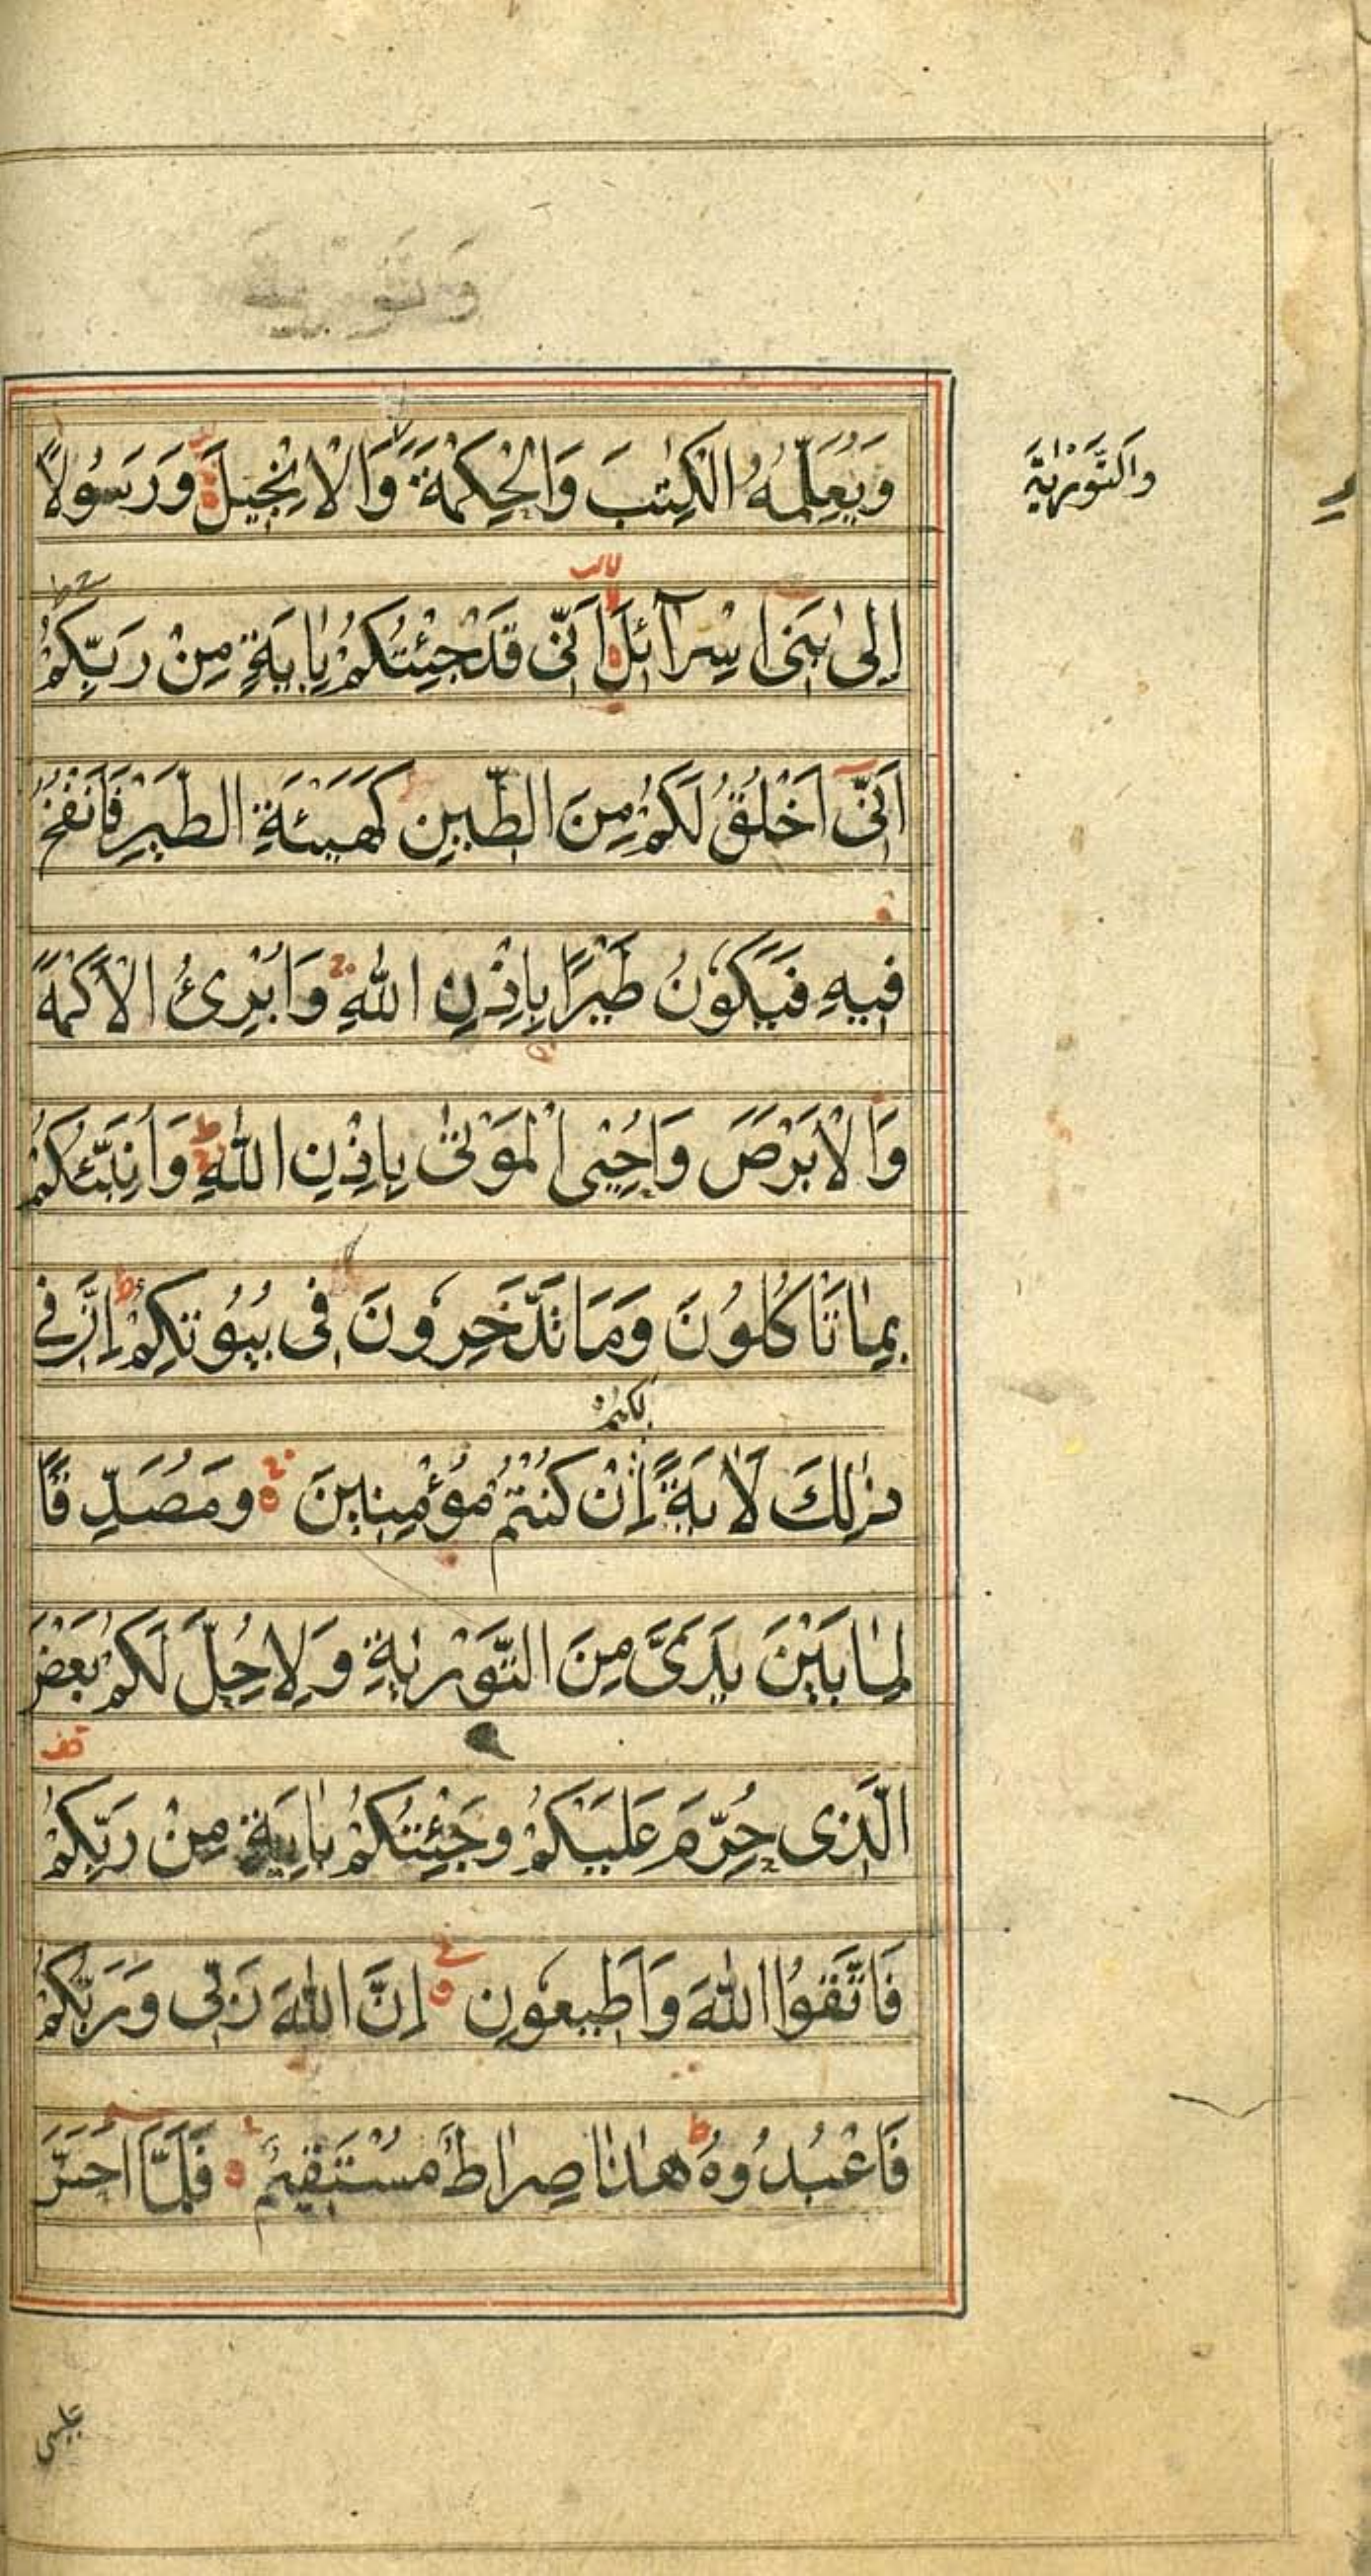 وَيُعَلِّمُهُ الْكِتٰبَ وَالْحِكْمَةَ وَالْاِنْجِيْلَ وَرَسُوْلًا
وَالتَّوْرٰيةَ
اِلٰى بَنِىْ اِسْرَآئِلَ اَنِّىْ قَدْ جِئْتُكُمْ بِاٰيَةٍ مِنْ رَبِّكُمْ
اَنِّىْٓ اَخْلُقُ لَكُمْ مِنَ الطِّيْنِ كَهَيْئَةِ الطَّيْرِ فَاَنْفُخُ
فِيْهِ فَيَكُوْنُ طَيْرًا بِاِذْنِ اللّٰهِ وَاُبْرِئُ الْاَكْمَهَ
وَالْاَبْرَصَ وَاُحْيِى الْمَوْتٰى بِاِذْنِ اللّٰهِ ط وَاُنَبِّئُكُمْ
بِمَا تَاْكُلُوْنَ وَمَا تَدَّخِرُوْنَ فِى بُيُوْتِكُمْ ط اِنَّ فِى
لَكُمْ
ذٰلِكَ لَاٰيَةً اِنْ كُنْتُمْ مُؤْمِنِيْنَ وَمُصَدِّقًا
لِمَا بَيْنَ يَدَىَّ مِنَ التَّوْرٰيةِ وَلِاُحِلَّ لَكُمْ بَعْضَ
قف
الَّذِى حُرِّمَ عَلَيْكُمْ وَجِئْتُكُمْ بِاٰيَةٍ مِنْ رَبِّكُمْ
فَاتَّقُوا اللّٰهَ وَاَطِيْعُوْنِ اِنَّ اللّٰهَ رَبِّى وَرَبُّكُمْ
فَاعْبُدُوْهُ ط هٰذَا صِرَاطٌ مُسْتَقِيْمٌ فَلَمَّآ اَحَسَّ
عيسى